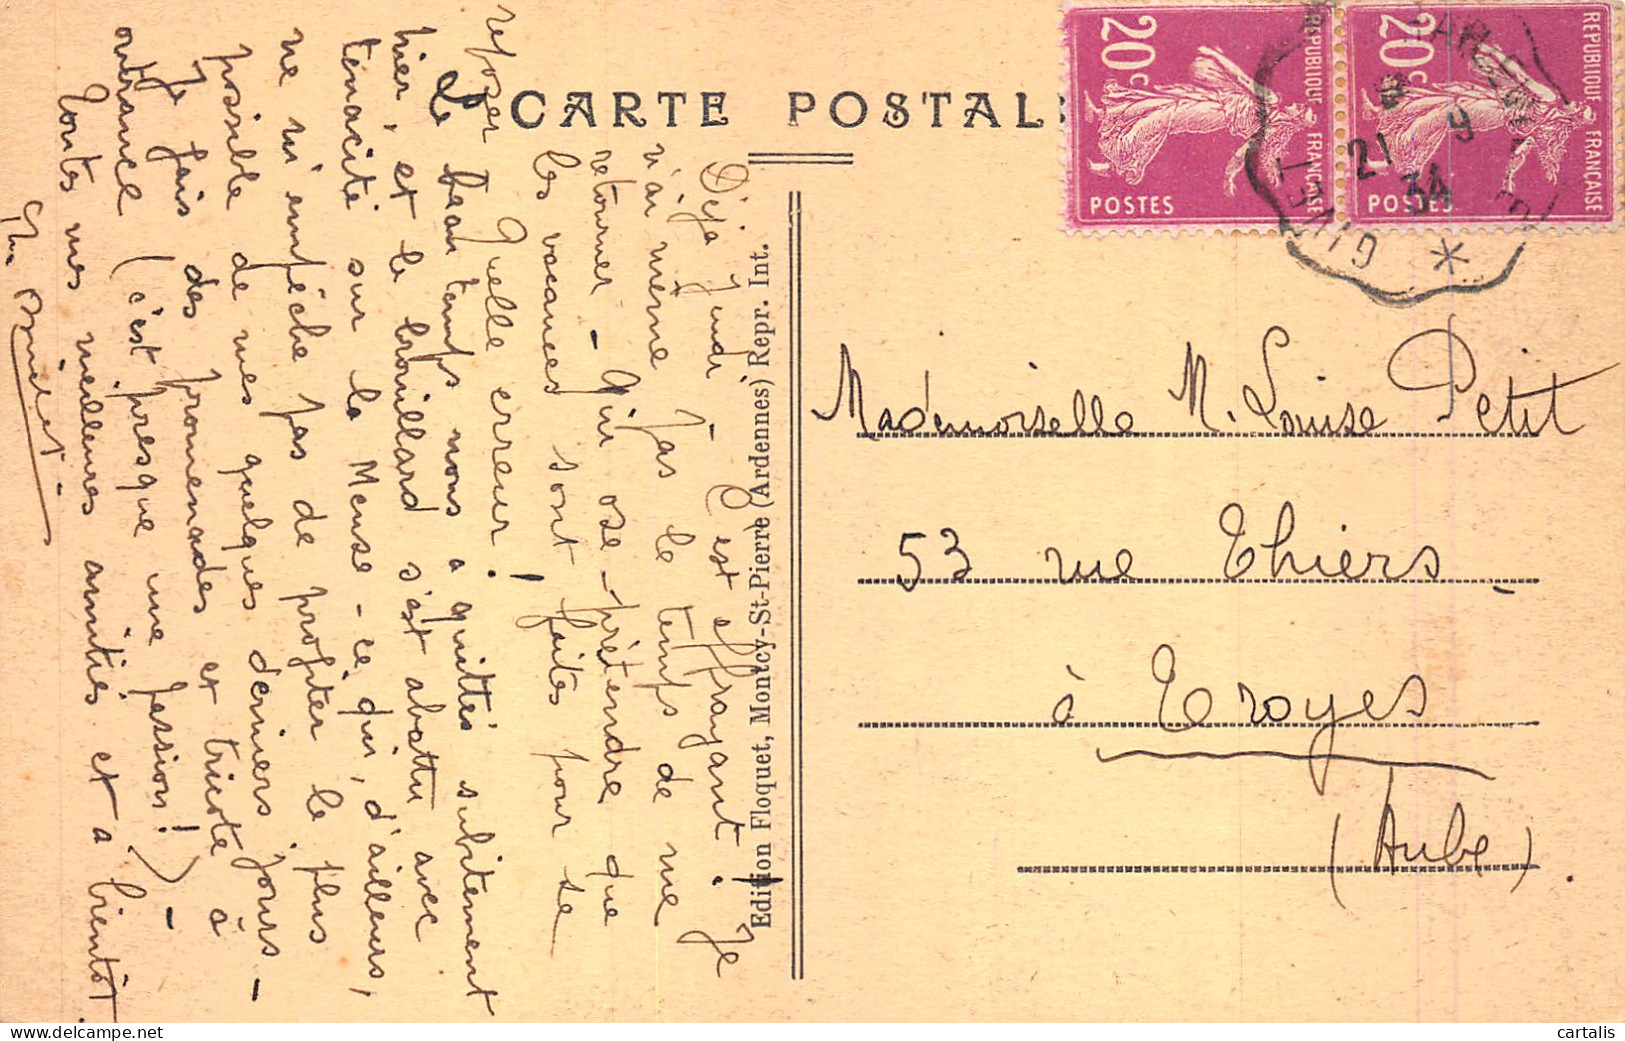 CARTE POSTALE
REPUBLIQUE FRANÇAISE
20c
POSTES
REPUBLIQUE FRANÇAISE
20c
POSTES
GIVET
21 9
34
Déjà jeudi - C'est effrayant. Je
n'ai même pas le temps de me
retourner - Qui ose prétendre que
les vacances sont faites pour se
reposer Quelle erreur !
Le beau temps nous a quittés subitement
hier, et le brouillard s'est abattu avec
tenacité sur la Meuse - ce qui, d'ailleurs,
ne m'empêche pas de profiter le plus
possible de mes quelques derniers jours -
Je fais des promenades et tricote à
outrance (c'est presque une passion !) -
Toutes mes meilleures amitiés et à bientôt
Edition Floquet, Montcy-St-Pierre (Ardennes) Repr. Int.
Mademoiselle M. Louise Petit
53 rue Thiers
à Troyes
(Aube).
cartalis